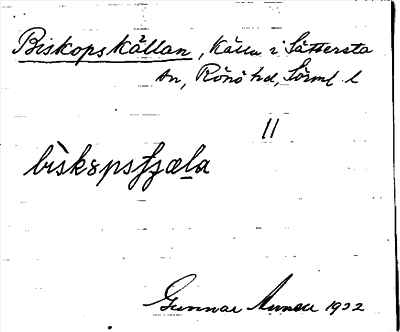 Biskopskällan, Källa i Sättersta
sn, Rönö hd, Sörml. l
//
bìskɞpsfȷæla
Gunnar 1932